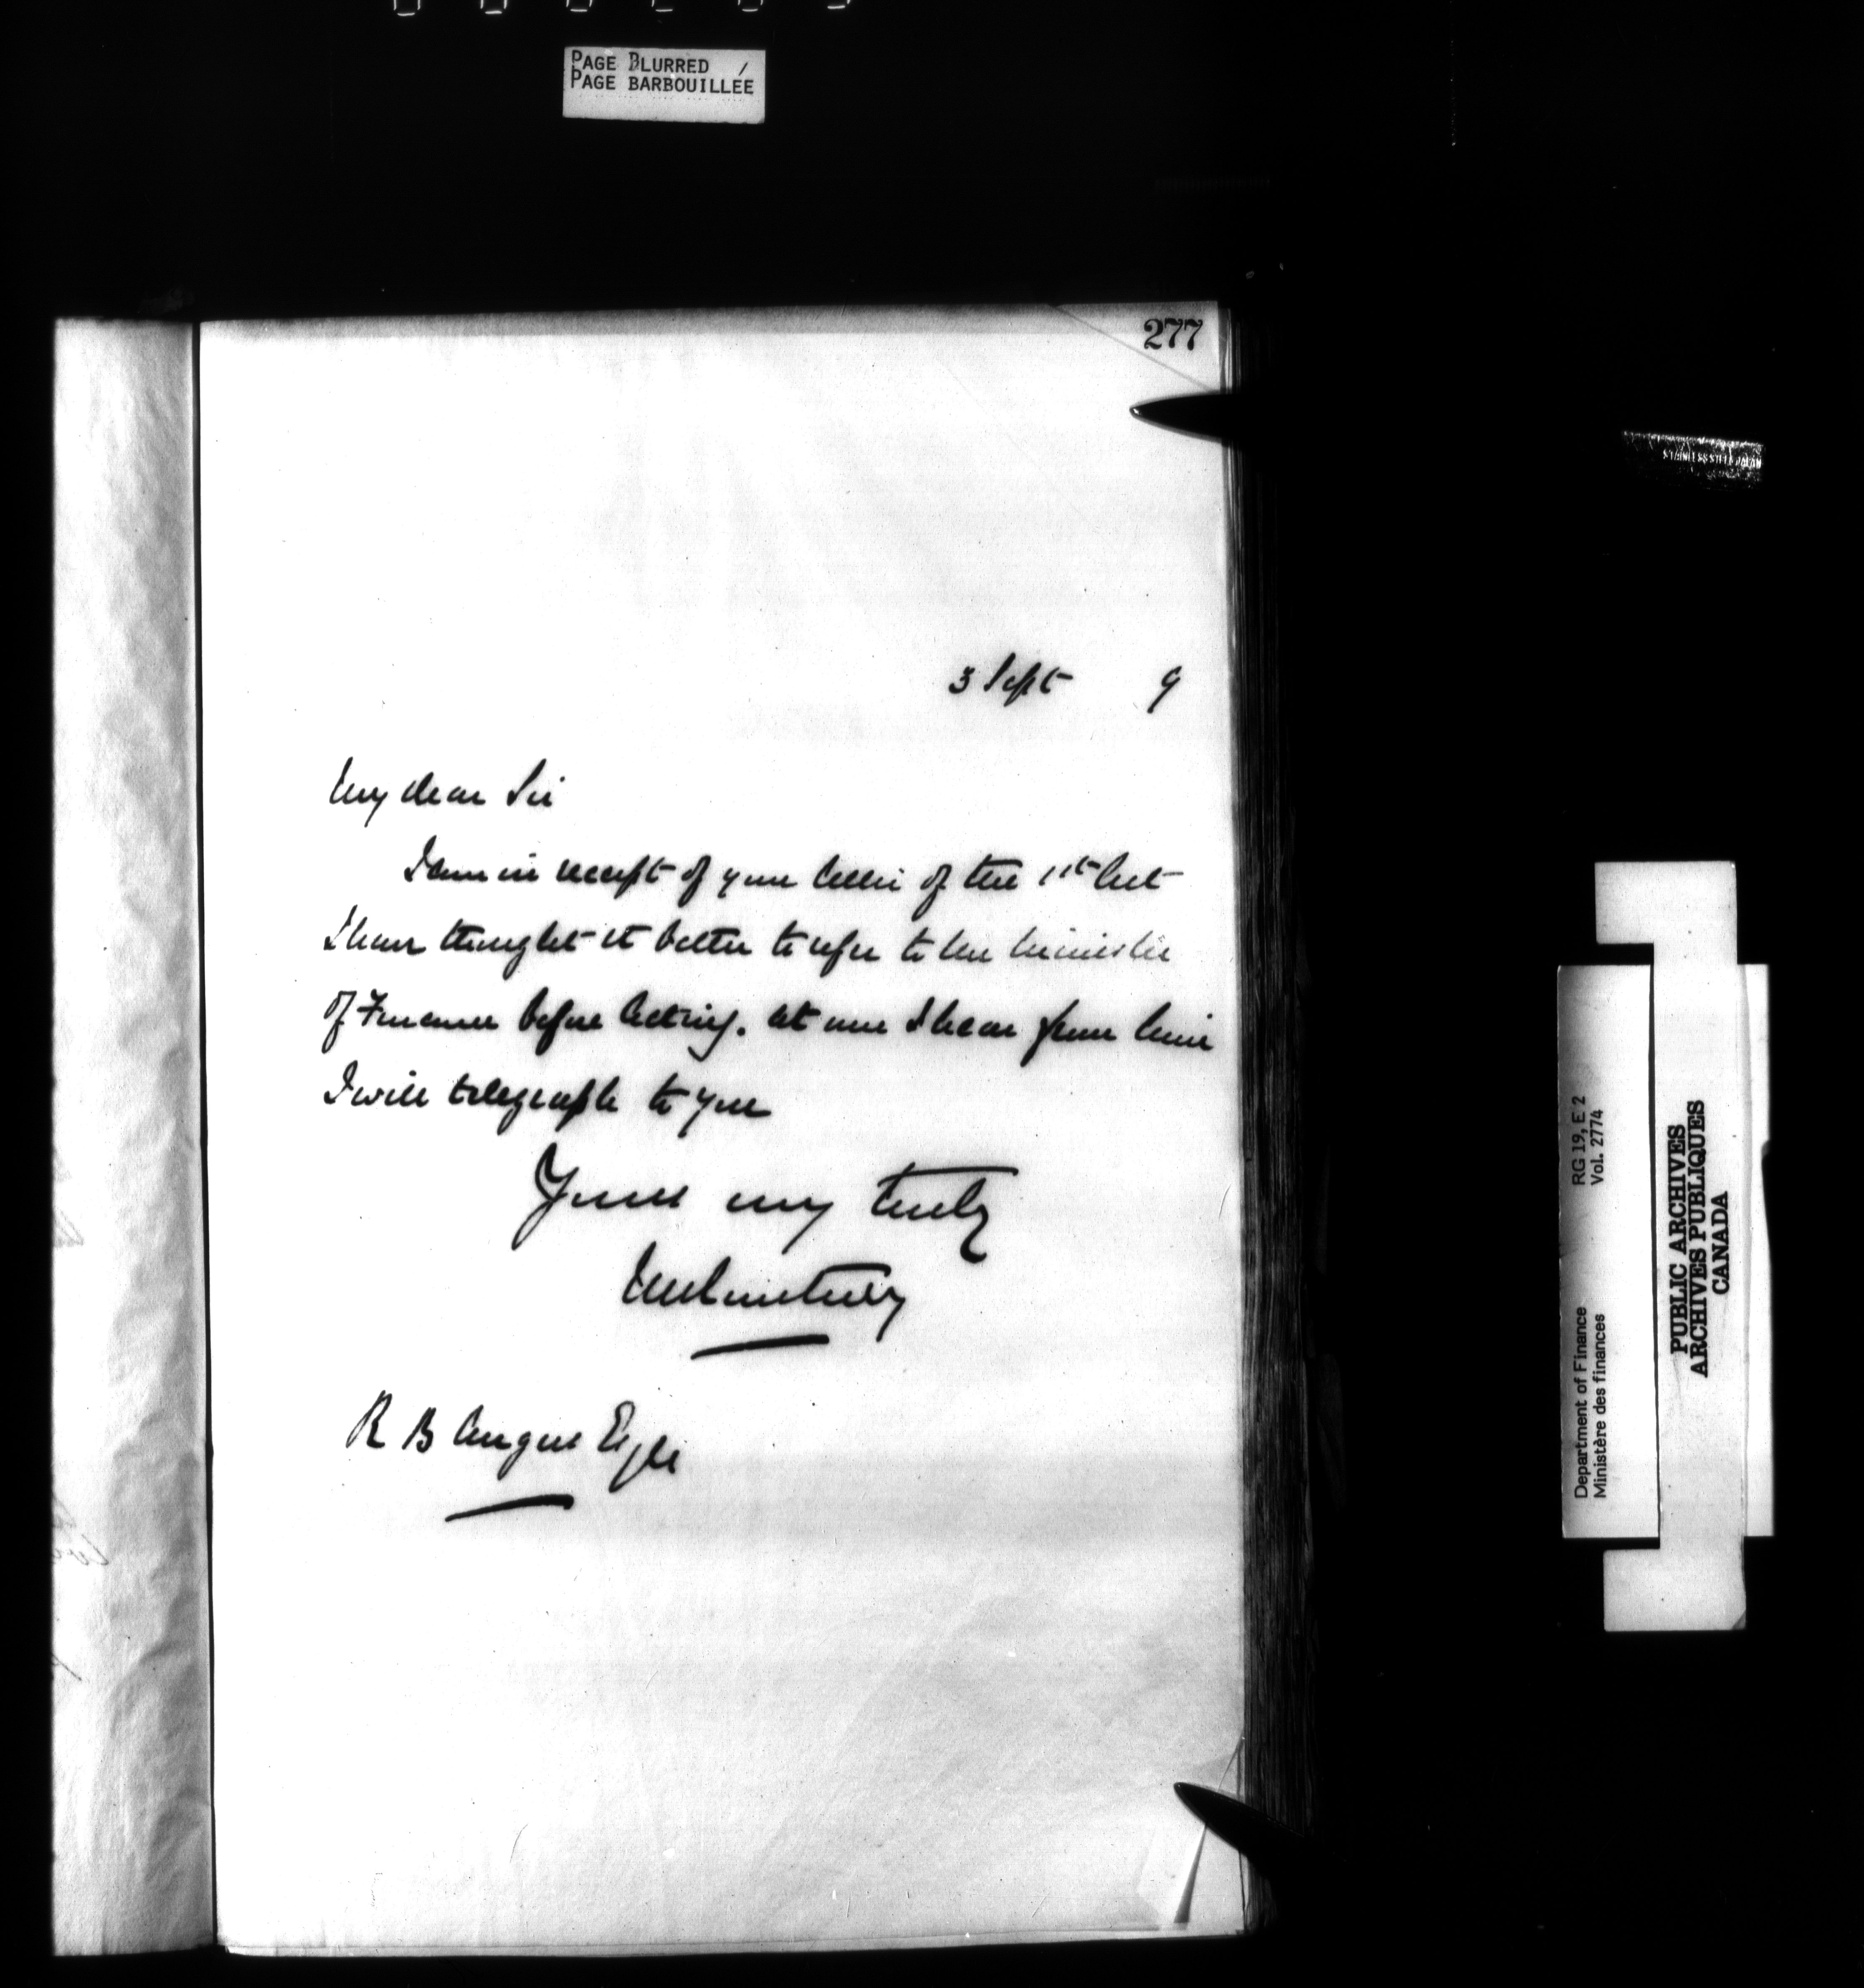 PAGE BLURRED
PAGE BARBOUILLÉE
277
3 Sept 9
My dear Sir
I am in receipt of your letter of the 1st Inst
I have thought it better to refer to the Minister
of Finance before acting. At once I hear from him
I will telegraph to you
Yours very truly
JMCourtney
R B Angus Esqre
STAINLESS STEEL JAPAN
Department of Finance RG 19, E 2
Ministère des finances Vol. 2774
PUBLIC ARCHIVES
ARCHIVES PUBLIQUES
CANADA